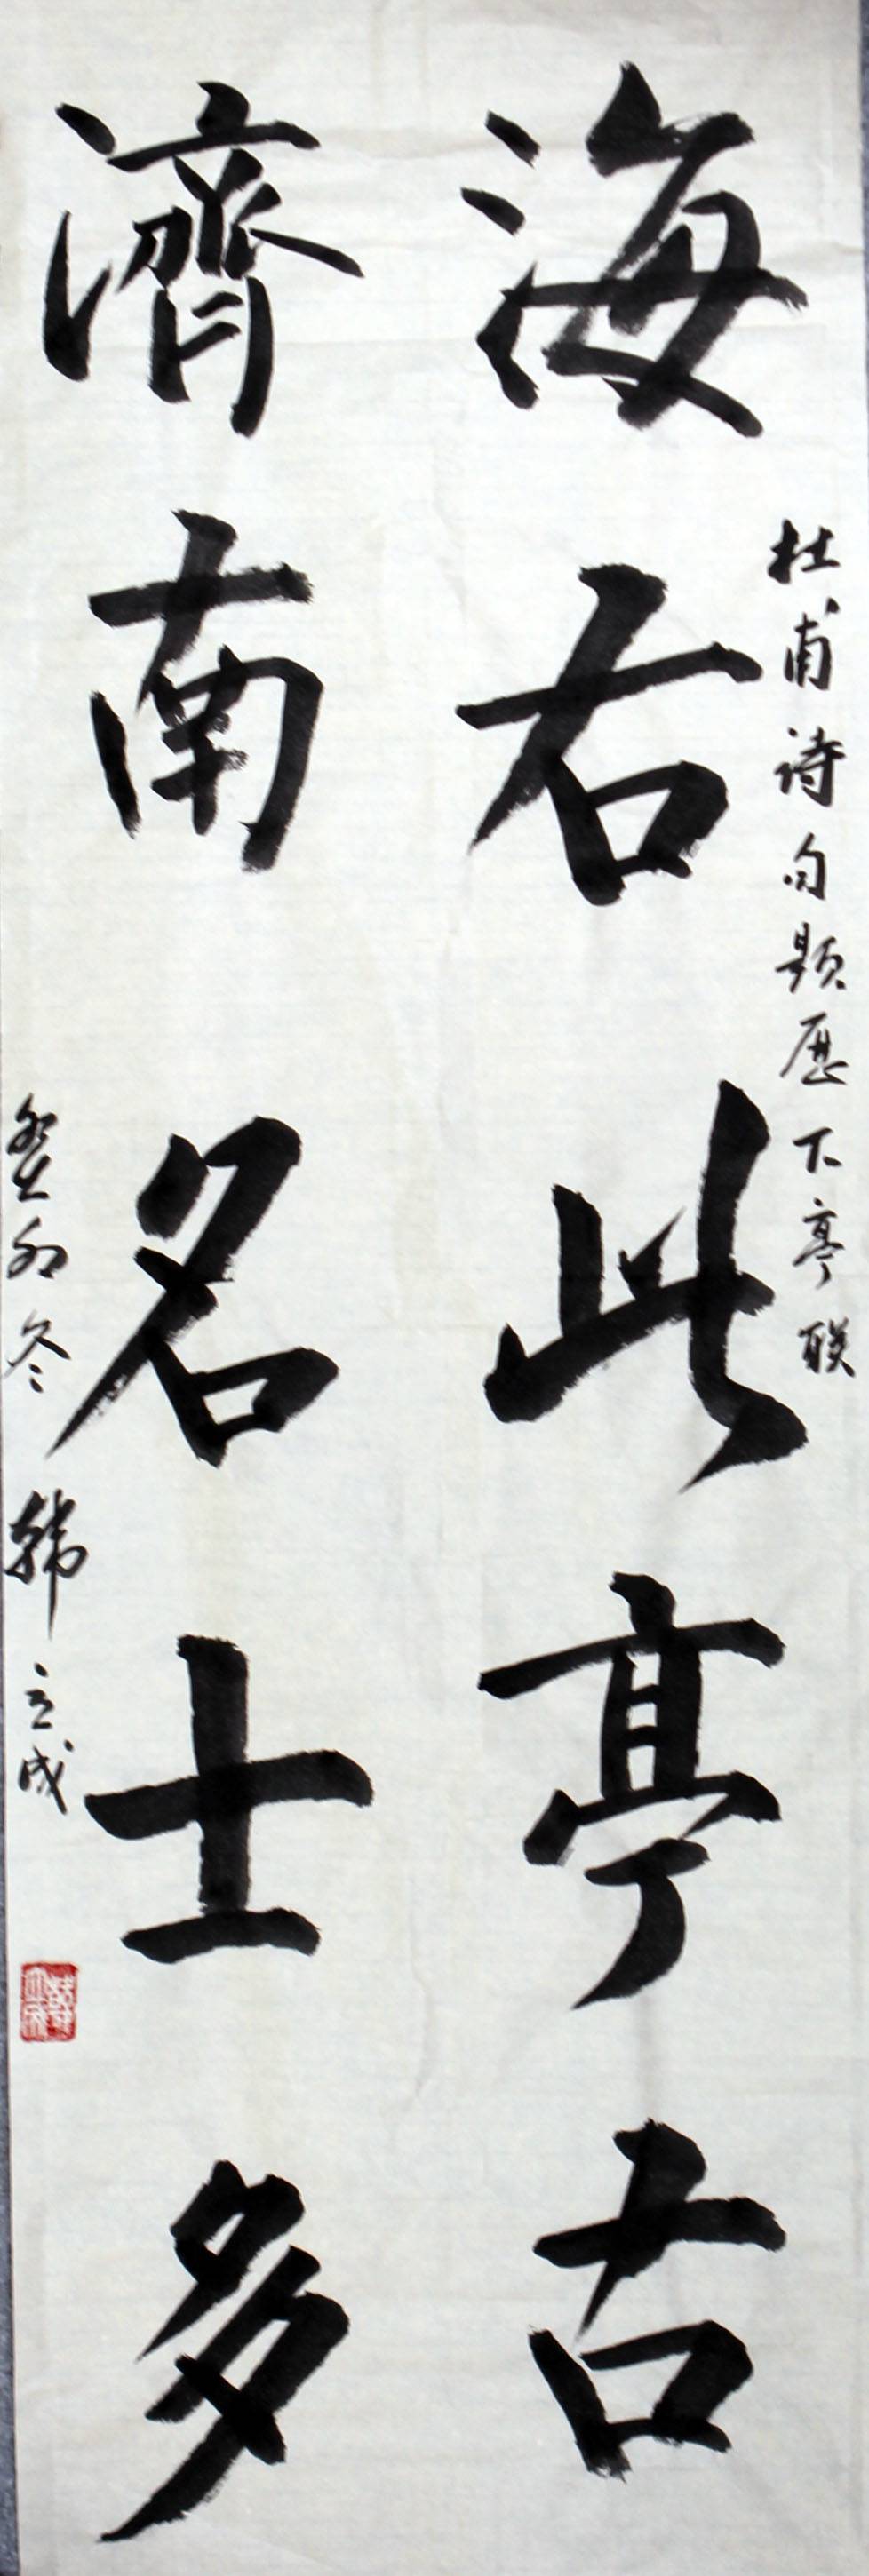 海右此亭古
杜甫诗句题歷下亭联
濟南名士多
癸卯冬 韩立成